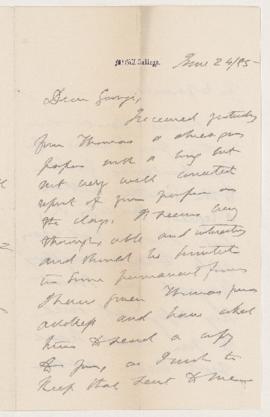 McGill College.
June 24/95
Dear George,
Received yesterday
from Thomas a
paper with a long but
not very well corrected
report of your paper on
the clays. It seems very
thorough, able and
and should be printed
in some permanent form
I have given Thomas your
address and have asked
him to send a copy
to you, as I wish to
keep that sent to me